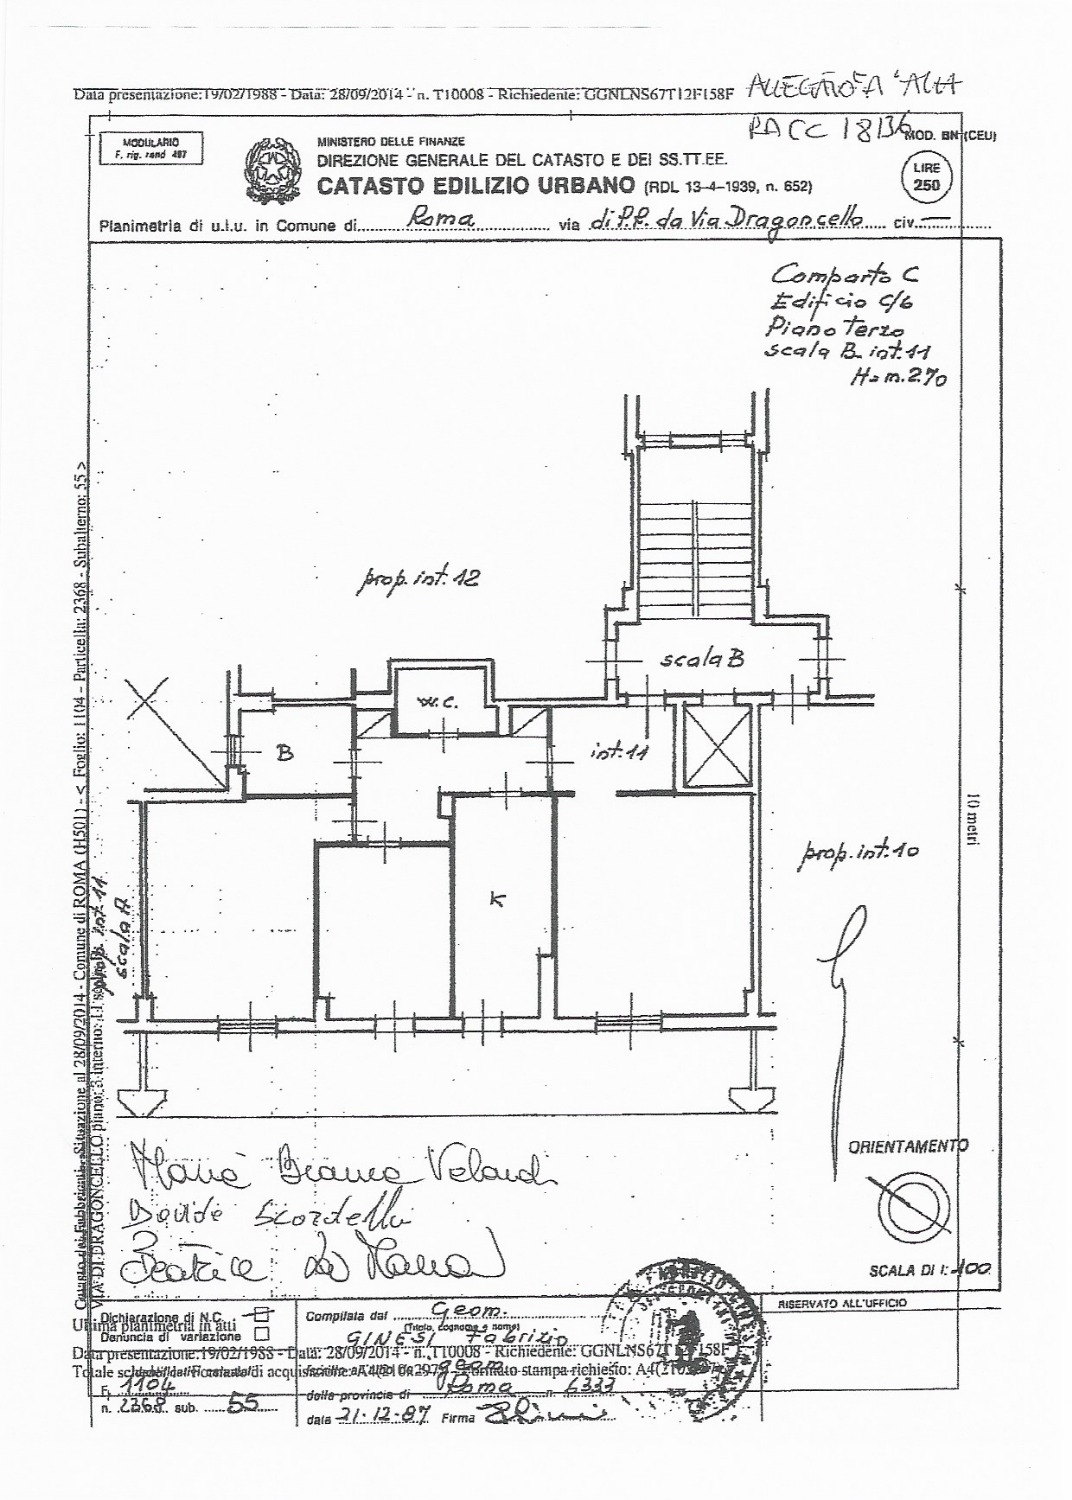 Data presentazione:19/02/1988 - Data: 28/09/2014 - n. T10008 - Richiedente: GGNLNS67T12F158F
ALLEGATO "A" ALLA
RACC 18136
MODULARIO
F. rig. rend 497
MOD. BN (CEU)
LIRE
250
MINISTERO DELLE FINANZE
DIREZIONE GENERALE DEL CATASTO E DEI SS.TT.EE.
CATASTO EDILIZIO URBANO (RDL 13-4-1939, n. 652)
Planimetria di u.i.u. in Comune di Roma via di P.R. da Via Dragoncello civ. —
Comparto C
Edificio C/6
Piano Terzo
scala B int.11
H=m.2.70
prop. int.12
scala B
w.c.
B
int.11
K
prop. int.10
prop. int.11
scala A
10 metri
Catasto dei Fabbricati - Situazione al 28/09/2014 - Comune di ROMA (H501) - < Foglio: 1104 - Particella: 2368 - Subalterno: 55 >
VIA DI DRAGONCELLO piano: 3 interno: 11
ORIENTAMENTO
SCALA DI 1:100
Davide Scordella
Beatrice
Dichiarazione di N.C.
Denuncia di variazione
Ultima planimetria in atti
Compilata dal Geom.
(Titolo, cognome e nome)
GINESI Fabrizio
RISERVATO ALL'UFFICIO
Data presentazione:19/02/1988 - Data: 28/09/2014 - n. T10008 - Richiedente: GGNLNS67T12F158F
F. 1104
n. 2368 sub. 55
geom.
della provincia di Roma n. 6333
data 21-12-87 Firma